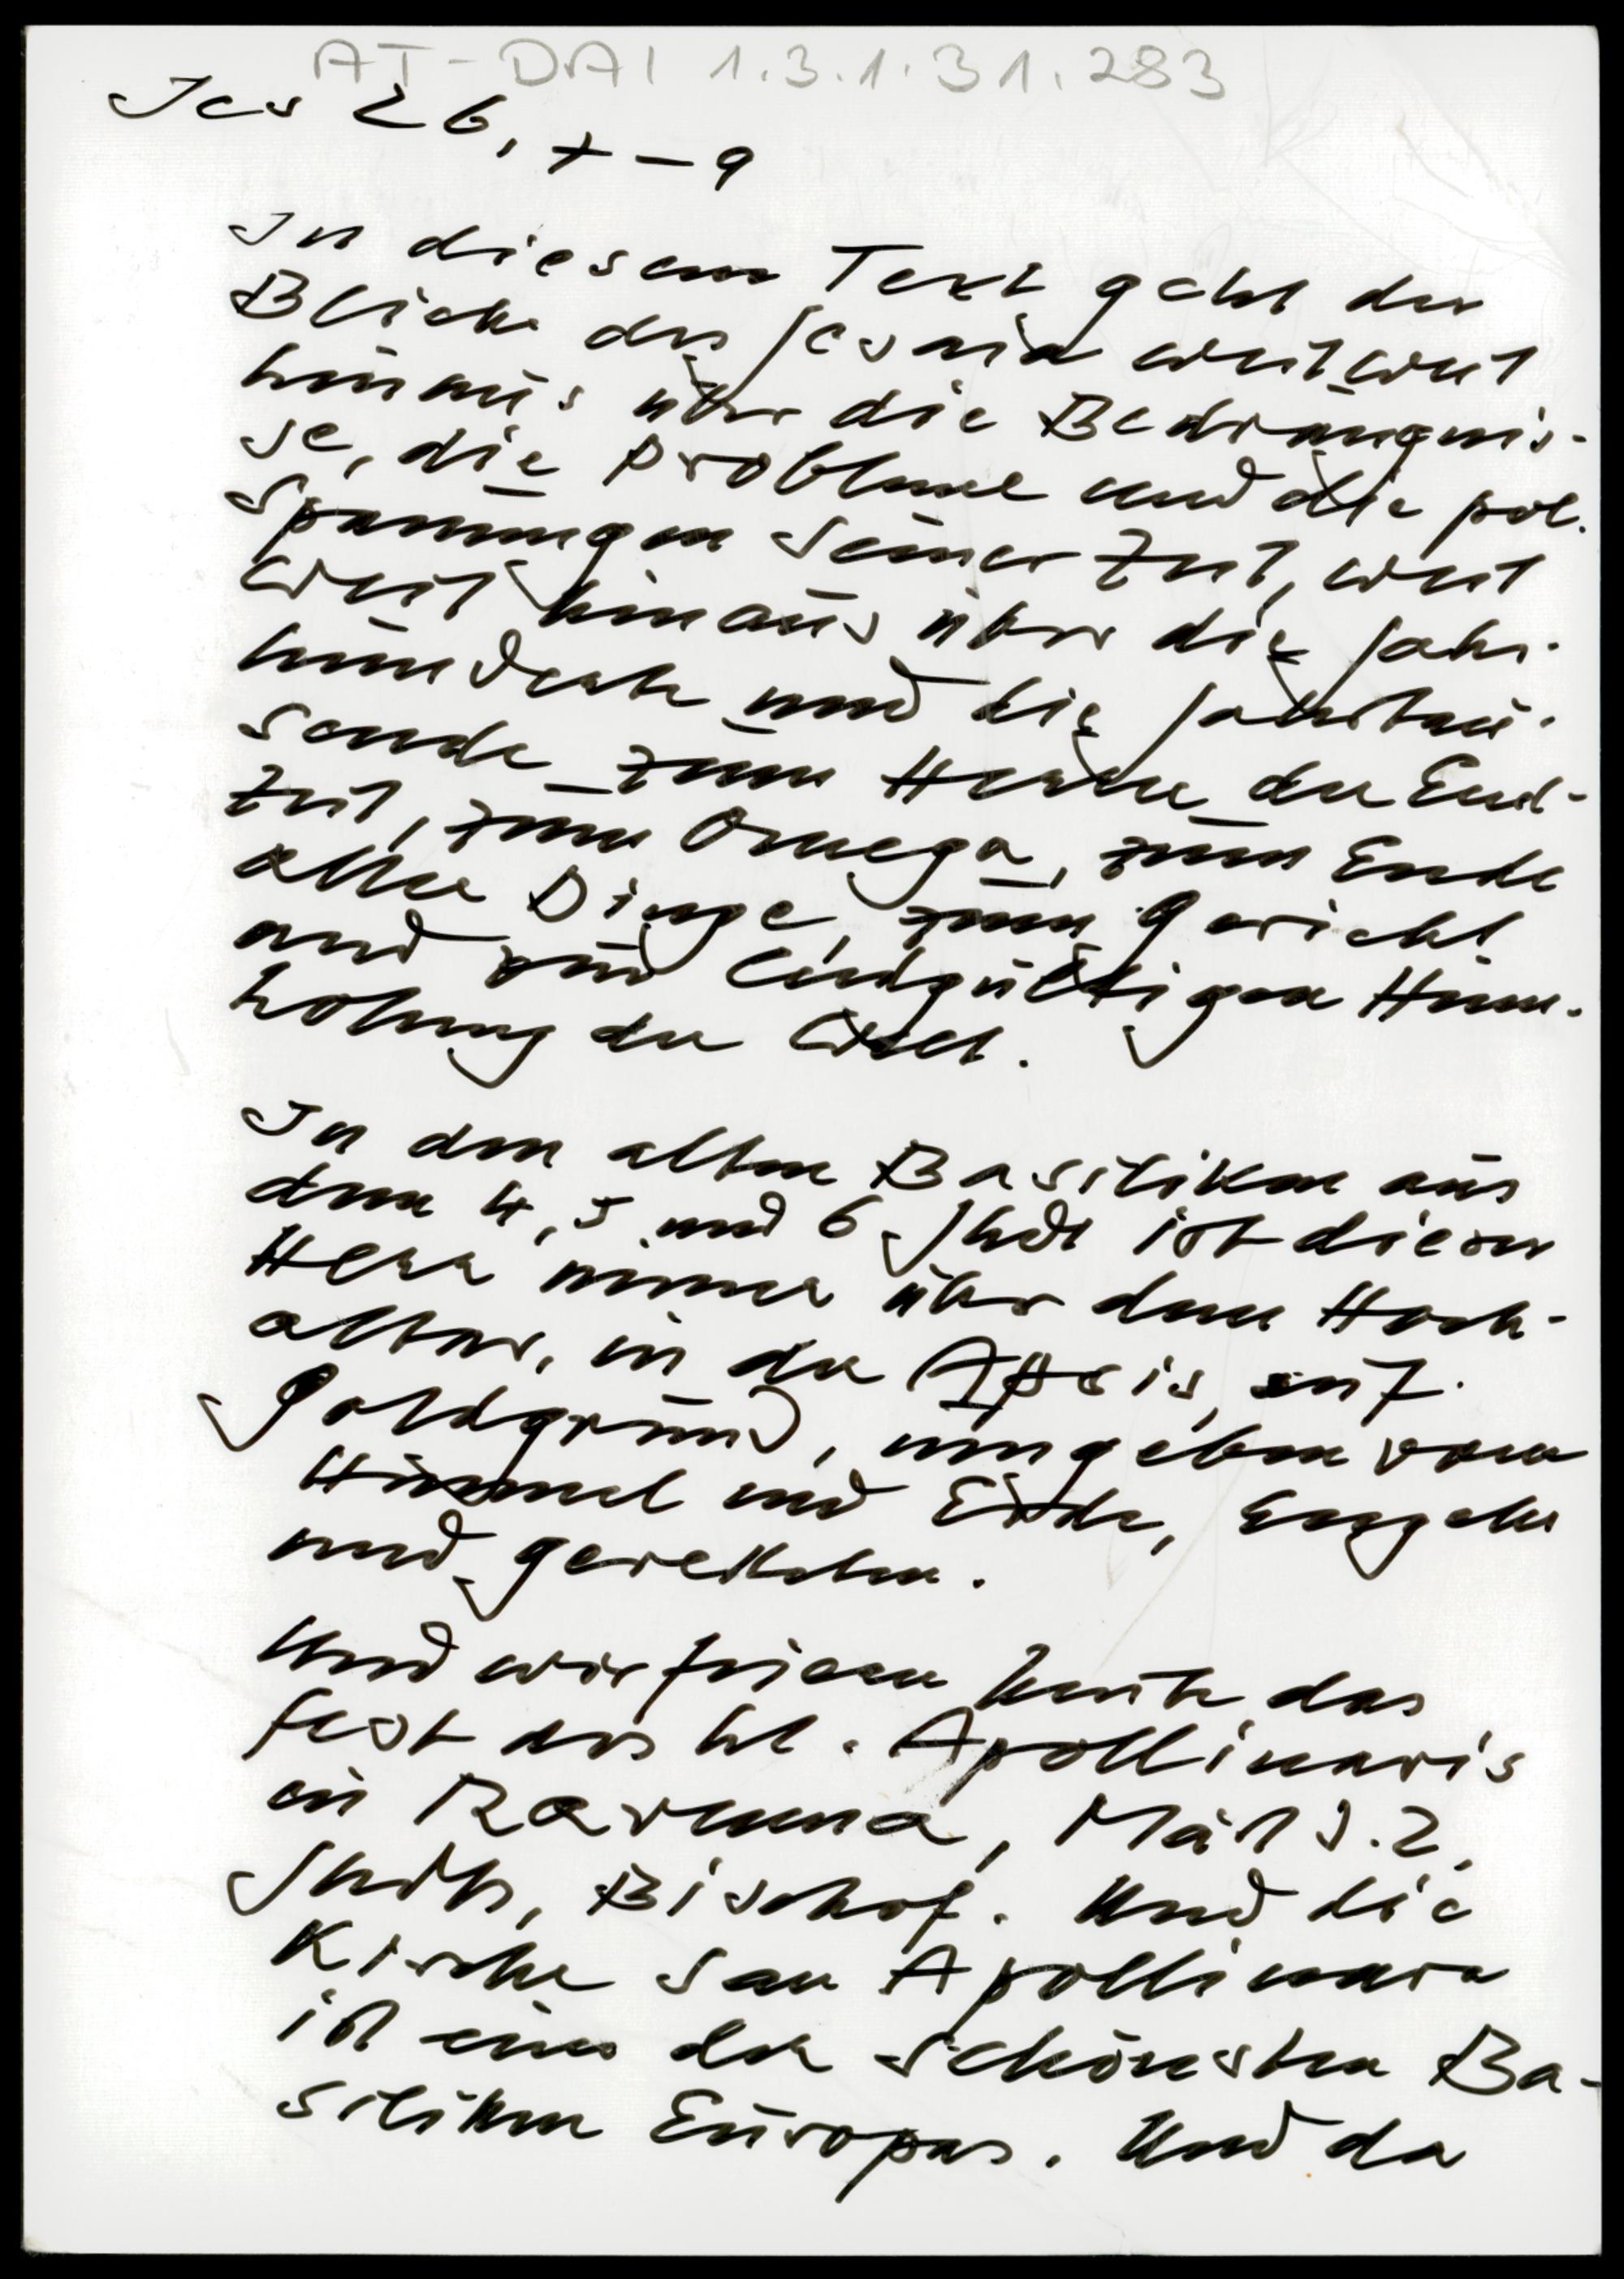 AT-DAI 1.3.1.31.283
Jes 26, 7-9
In diesem Text geht der
Blick des Jesaia weit weit
hinaus über die Bedrängnis-
se, die Probleme und die pol.
Spannungen seiner Zeit, weit
weit hinaus über die Jahr-
hunderte und die Jahrtau-
sende zum Herrn der End-
zeit, zum Omega, zum Ende
aller Dinge, zum Gericht
und zur endgültigen Heim-
holung der Welt.
In den alten Basiliken aus
dem 4, 5 und 6 Jhdt ist dieser
Herr immer über dem Hoch-
altar, in der Apsis, auf
Goldgrund, umgeben von
Himmel und Erde, Engeln
und Gerechten.
Und wir feiern heute das
Fest des hl. Apollinaris
in Ravenna, Märt d. 2.
Jhdts, Bischof. Und die
Kirche San Apollinare
ist eine der schönsten Ba-
siliken Europas. Und da